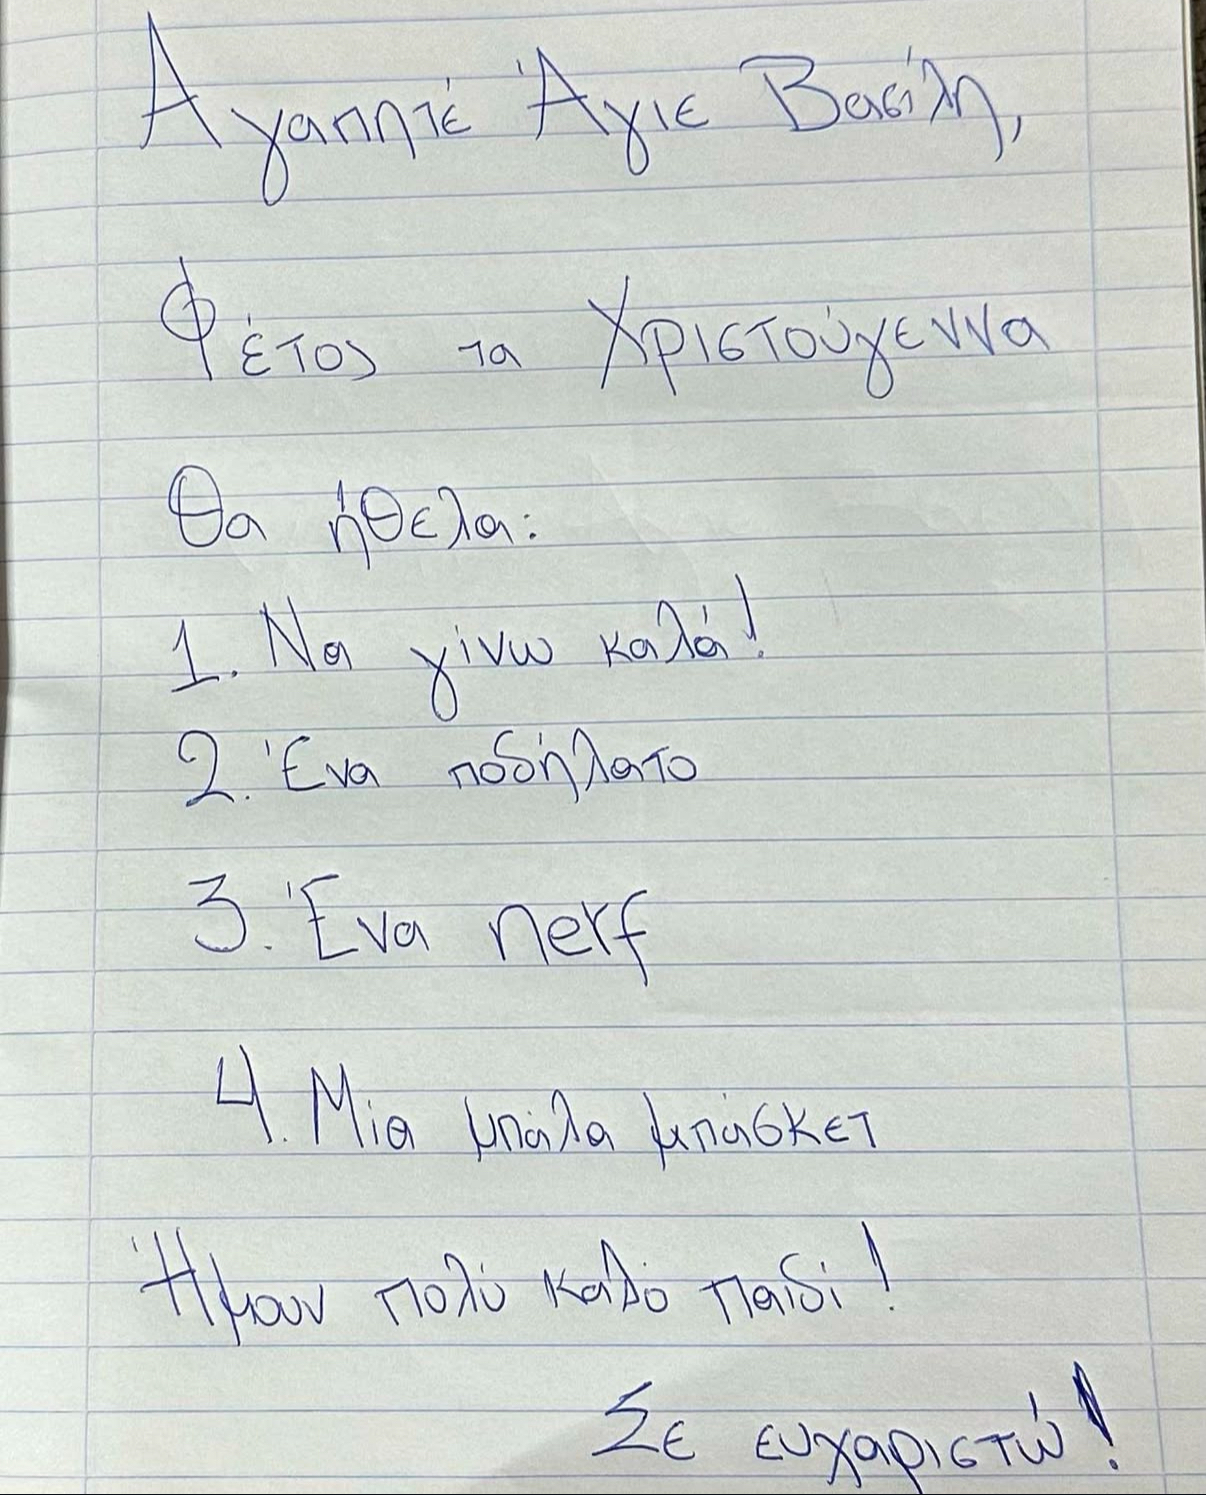 Αγαπητέ Άγιε Βασίλη,
Φέτος τα Χριστούγεννα
Θα ήθελα:
1. Να γίνω καλά!
2. Ένα ποδήλατο
3. Ένα nerf
4. Μία μπάλα μπάσκετ
Ήμουν πολύ καλό παιδί!
Σε ευχαριστώ!